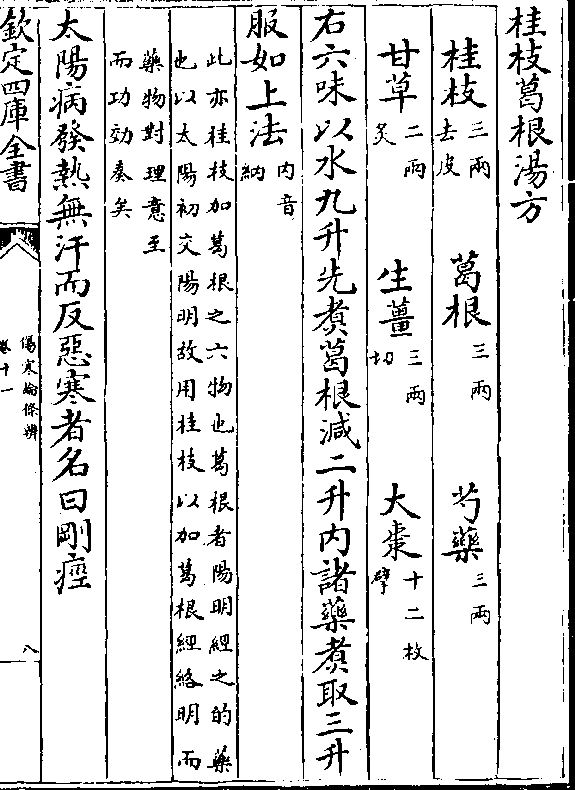 桂枝葛根湯方
桂枝三兩去皮 葛根三兩 芍藥三兩
甘草二兩炙 生薑三兩切 大棗十二枚擘
右六味以水九升先煑葛根減二升内諸藥煑取三升
服如上法内音納
此亦桂枝加葛根之六物也葛根者陽明經之的藥
也以太陽初交陽明故用桂枝以加葛根經絡明而
藥物對理意至
而功効奏矣
太陽病發熱無汗而反惡寒者名曰剛痙
欽定四庫全書
傷寒論條辨
卷十一
八